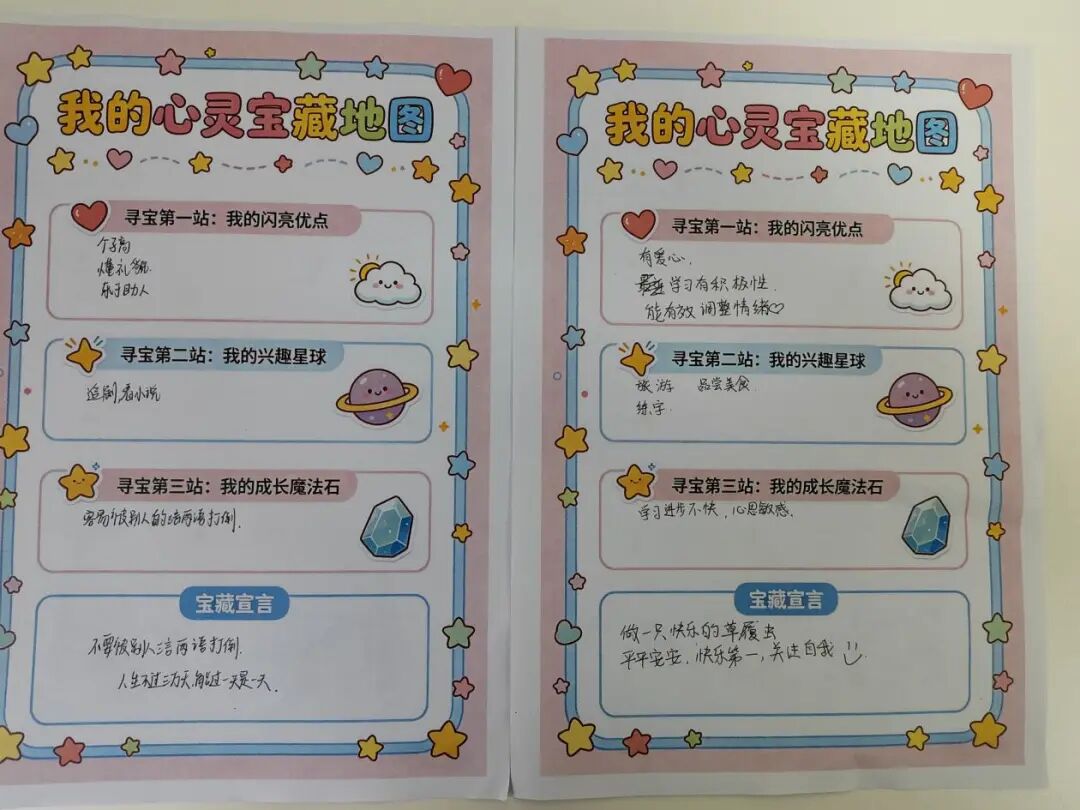 我的心灵宝藏地图
寻宝第一站：我的闪亮优点
个子高
懂礼貌.
乐于助人
寻宝第二站：我的兴趣星球
追剧,看小说
寻宝第三站：我的成长魔法石
容易被别人的三言两语打倒.
宝藏宣言
不要被别人三言两语打倒.
人生不过三万天,能过一天是一天.
我的心灵宝藏地图
寻宝第一站：我的闪亮优点
有爱心.
学习有积极性.
能有效调整情绪♡
寻宝第二站：我的兴趣星球
旅游 品尝美食.
练字.
寻宝第三站：我的成长魔法石
学习进步不快,心思敏感.
宝藏宣言
做一只快乐的草履虫
平平安安,快乐第一,关注自我